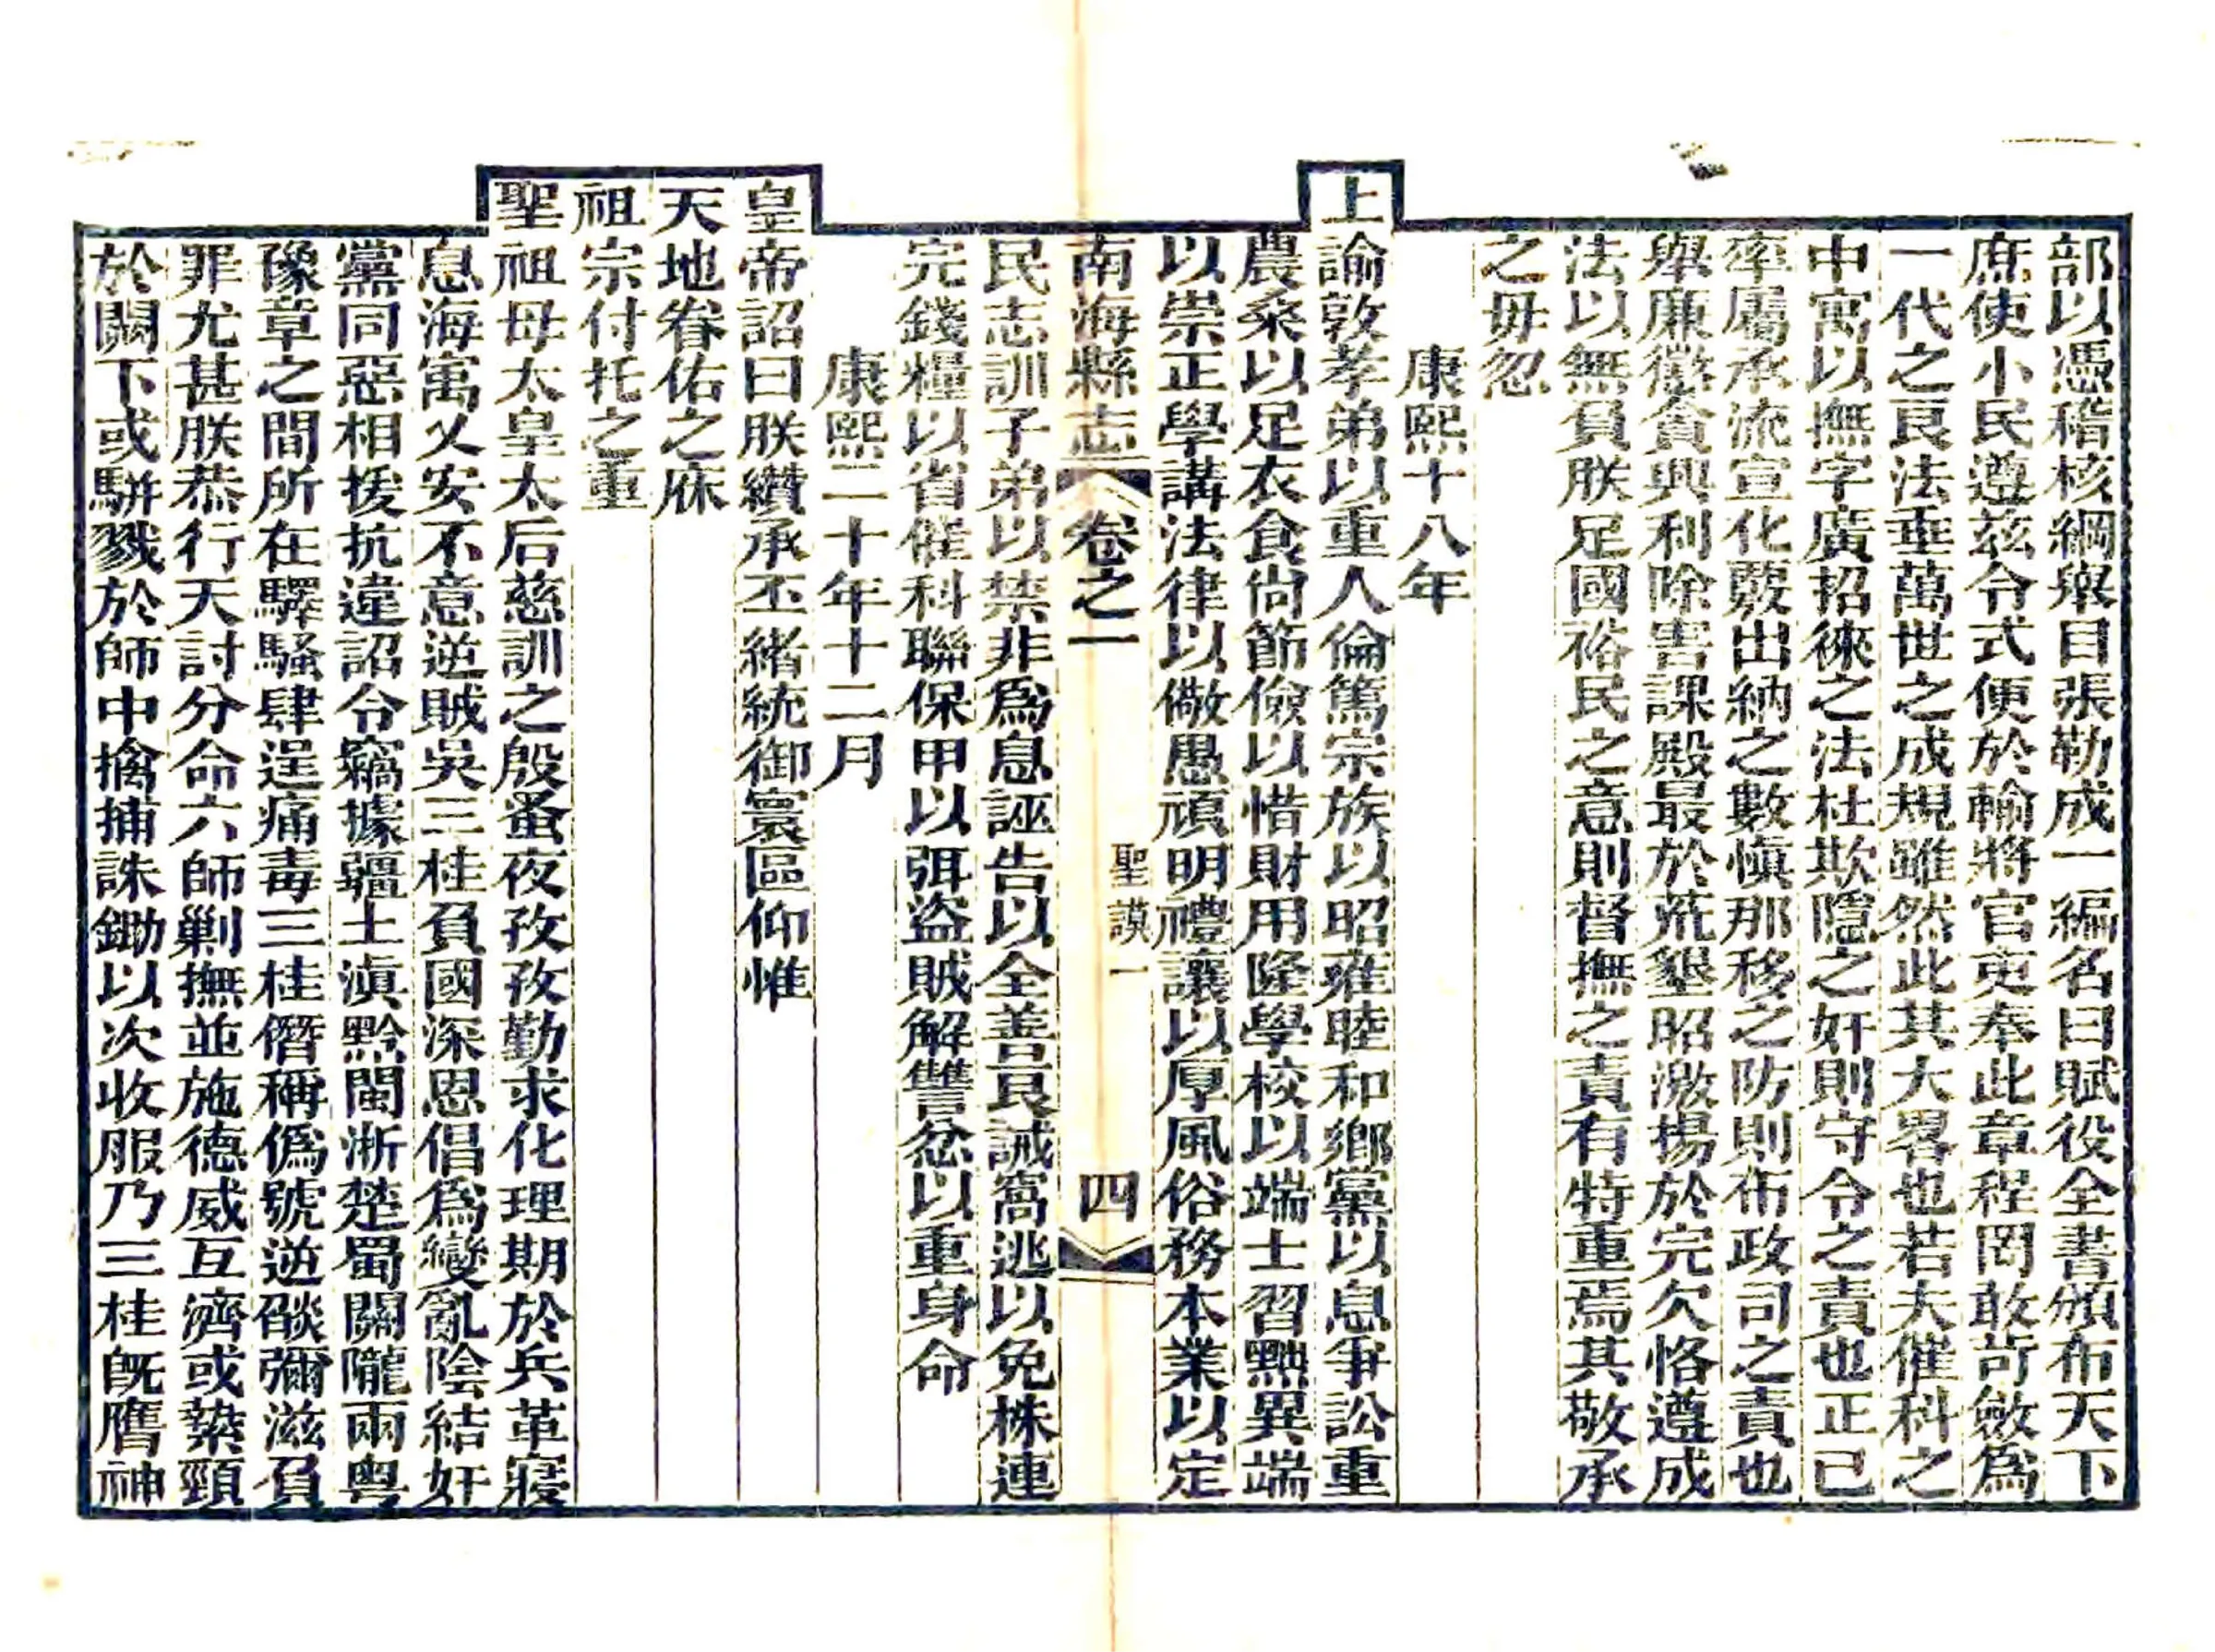 部以憑稽核綱舉目張勒成一編名曰賦役全書頒布天下
庶使小民遵茲令式便於輸將官吏奉此章程罔敢苛斂為
一代之良法垂萬世之成規雖然此其大畧也若夫催科之
中寓以撫字廣招徠之法杜欺隱之奸則守令之責也正己
率屬承流宣化覈出納之數慎那移之防則布政司之責也
舉廉懲貪興利除害課殿最於荒墾昭激揚於完欠恪遵成
法以無負朕足國裕民之意則督撫之責有特重焉其敬承
之毋忽
康熙十八年
上諭敦孝弟以重人倫篤宗族以昭雍睦和鄉黨以息爭訟重
農桑以足衣食尙節儉以惜財用隆學校以端士習黜異端
以崇正學講法律以儆愚頑明禮讓以厚風俗務本業以定
南海縣志 卷之一 聖謨一 四
民志訓子弟以禁非爲息誣告以全善良誡窩逃以免株連
完錢糧以省催科聯保甲以弭盜賊解讐忿以重身命
康熙二十年十二月
皇帝詔曰朕纘承丕緒統御寰區仰惟
天地眷佑之庥
祖宗付托之重
聖祖母太皇太后慈訓之殷蚤夜孜孜勤求化理期於兵革寢
息海寓乂安不意逆賊吳三桂負國深恩倡爲變亂陰結奸
黨同惡相援抗違詔令竊據疆土滇黔閩浙楚蜀關隴兩粵
豫章之間所在驛騷肆逞痛毒三桂僭稱僞號逆燄彌滋負
罪尤甚朕恭行天討分命六師剿撫並施德威互濟或槊頸
於闕下或駢戮於師中擒捕誅鋤以次收服乃三桂旣膺神